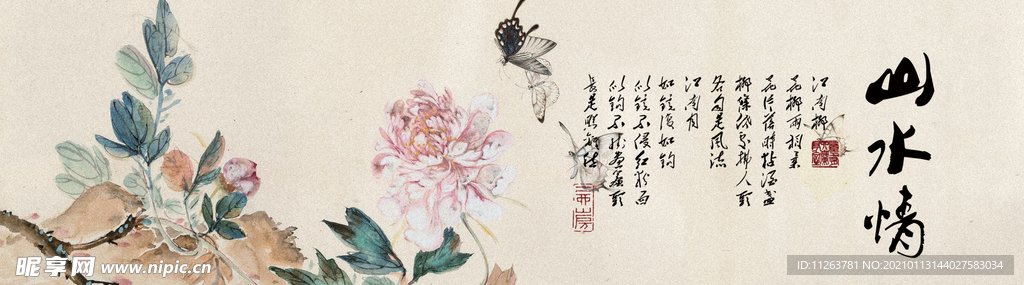 山水情
江南柳
花柳两相柔
花片落时黏酒盏
柳条低处拂人头
各自是风流
江南月
如镜复如钩
似镜不侵红粉面
似钩不挂画帘头
长是照离愁
昵享网 www.nipic.cn
ID:11263781 NO:20210113144027583034